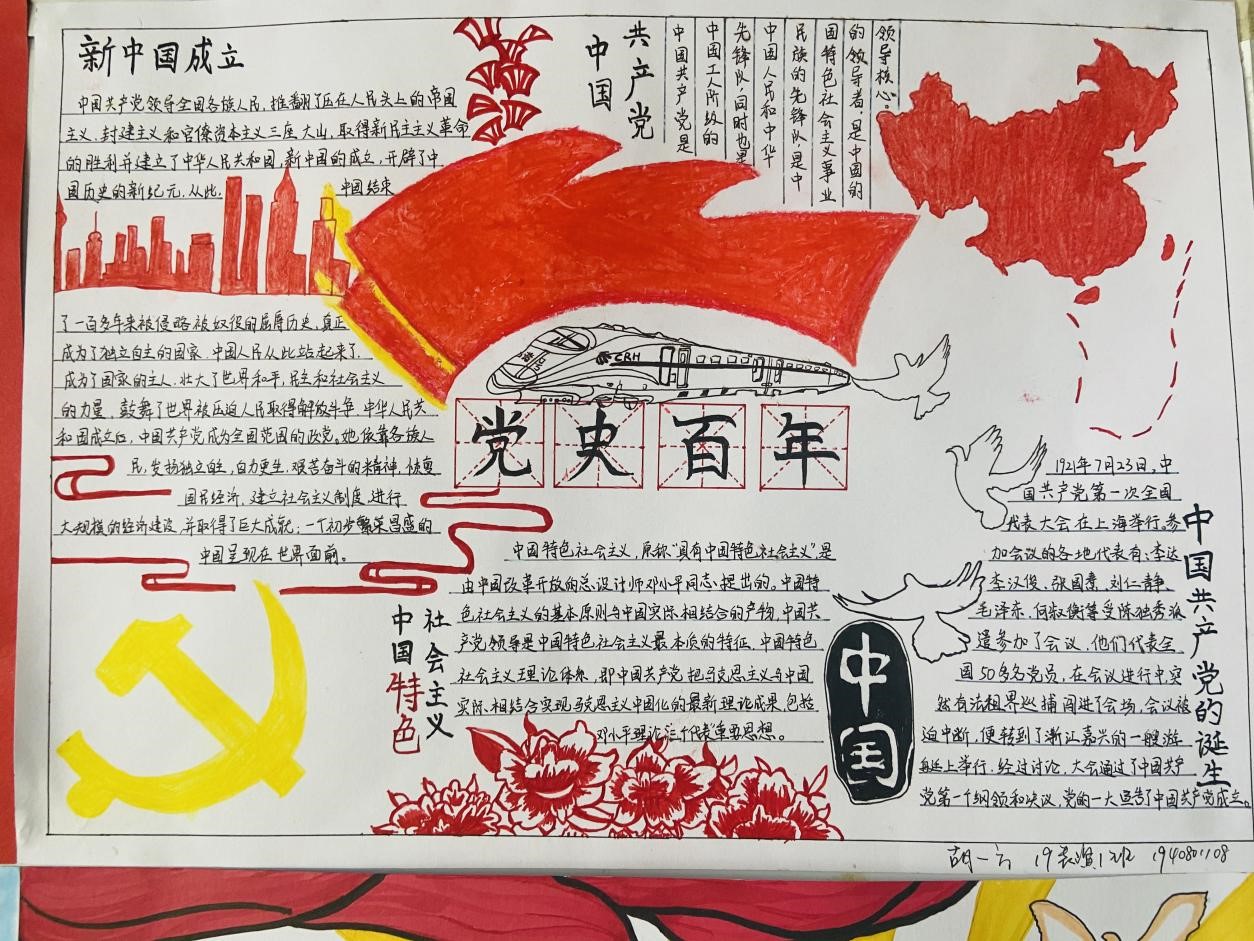 新中国成立
中国共产党领导全国各族人民，推翻了压在人民头上的帝国
主义，封建主义和官僚资本主义三座大山，取得新民主主义革命
的胜利并建立了中华人民共和国，新中国的成立，开辟了中
国历史的新纪元，从此，
中国结束
了一百多年来被侵略被奴役的屈辱历史，真正
成为了独立自主的国家，中国人民从此站起来了，
成为了国家的主人，壮大了世界和平，民主和社会主义
的力量，鼓舞了世界被压迫人民取得解放斗争，中华人民共
和国成立后，中国共产党成为全国范围的政党。她依靠各族人
民，发扬独立自主，自力更生，艰苦奋斗的精神，恢复
国民经济，建立社会主义制度，进行
大规模的经济建设，并取得了巨大成就；一个初步繁荣昌盛的
中国呈现在世界面前。
共产党
中国
中国共产党是
中国工人阶级的
先锋队，同时也是
中国人民和中华
民族的先锋队，是中
国特色社会主义事业
的领导者，是中国的
领导核心。
CRH
党史百年
社会主义
中国特色
中国特色社会主义，原称"具有中国特色社会主义"是
由中国改革开放的总设计师邓小平同志提出的。中国特
色社会主义的基本原则与中国实际相结合的产物，中国共
产党领导是中国特色社会主义最本质的特征，中国特色
社会主义理论体系，即中国共产党把马克思主义与中国
实际相结合实现马克思主义中国化的最新理论成果，包括
邓小平理论"三个代表"重要思想。
中国
中国共产党的诞生
1921年7月23日，中
国共产党第一次全国
代表大会在上海举行。参
加会议的各地代表有：李达
李汉俊、张国焘、刘仁静、
毛泽东、何叔衡等受陈独秀派
遣参加了会议，他们代表全
国50多名党员，在会议进行中突
然有法租界巡捕闯进了会场，会议被
迫中断，便转到了浙江嘉兴的一艘游
艇上举行，经过讨论，大会通过了中国共产
党第一个纲领和决议，党的一大宣告了中国共产党成立。
胡一 19表演12班 1940801108